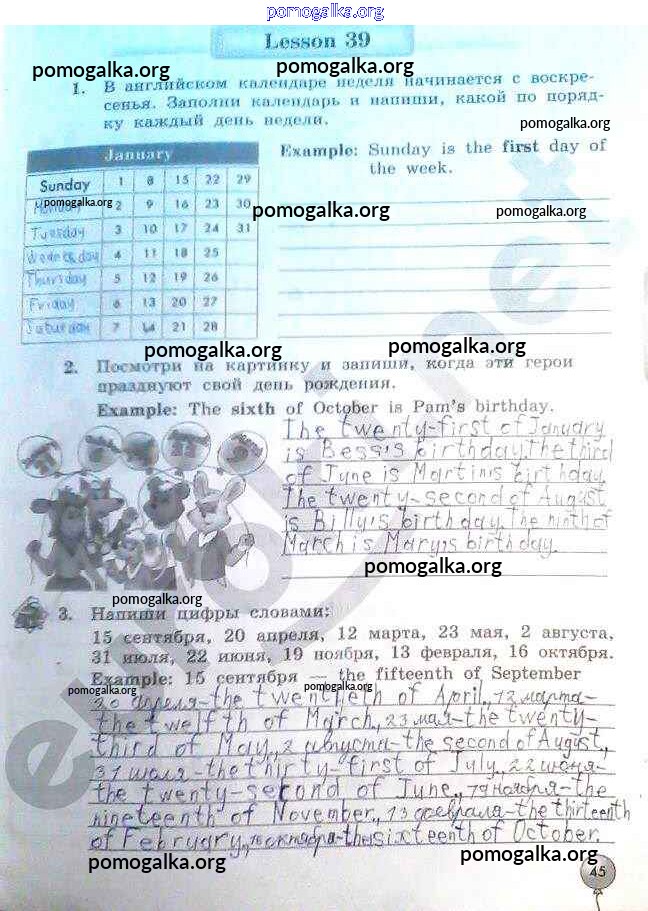 pomogalka.org
Lesson 39
pomogalka.org
pomogalka.org
1. В английском календаре неделя начинается с воскре-
сенья. Заполни календарь и напиши, какой по поряд-
ку каждый день недели.
pomogalka.org
January
Sunday 1 8 15 22 29
Monday 2 9 16 23 30
Tuesday 3 10 17 24 31
Wednesday 4 11 18 25
Thursday 5 12 19 26
Friday 6 13 20 27
Saturday 7 14 21 28
Example: Sunday is the first day of
the week.
pomogalka.org
pomogalka.org
pomogalka.org
pomogalka.org
pomogalka.org
2. Посмотри на картинку и запиши, когда эти герои
празднуют свой день рождения.
Example: The sixth of October is Pam's birthday.
The twenty-first of January
is Bess's birthday. The third
of June is Martin's birthday.
The twenty-second of August
is Billy's birthday. The ninth of
March is Mary's birthday.
pomogalka.org
pomogalka.org
3. Напиши цифры словами:
15 сентября, 20 апреля, 12 марта, 23 мая, 2 августа,
31 июля, 22 июня, 19 ноября, 13 февраля, 16 октября.
Example: 15 сентября — the fifteenth of September
pomogalka.org
pomogalka.org
20 апреля-the twentieth of April, 12 марта-
the twelfth of March, 23 мая-the twenty-
third of May, 2 августа-the second of August,
31 июля-the thirty-first of July, 22 июня-
the twenty-second of June, 19 ноября-the
nineteenth of November, 13 февраля-the thirteenth
of February, 16 октября-the sixteenth of October.
pomogalka.org
pomogalka.org
45